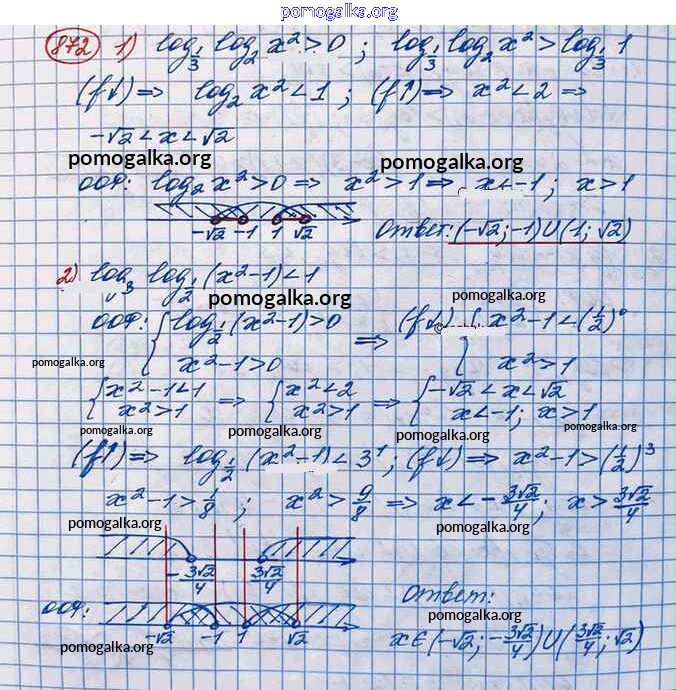 pomogalka.org
872 1) log_{1/3} log_2 x² > 0 ; log_{1/3} log_2 x² > log_{1/3} 1
(f↓) ⇒ log_2 x² < 1 ; (f↑) ⇒ x² < 2 ⇒
-√2 < x < √2
pomogalka.org pomogalka.org
ООФ: log_2 x² > 0 ⇒ x² > 1 ⇒ x < -1 ; x > 1
-√2 -1 1 √2 Ответ: (-√2; -1) U (1; √2)
2) log_3 log_{1/2} (x² - 1) < 1
pomogalka.org pomogalka.org
ООФ: { log_{1/2} (x² - 1) > 0 ⇒ (f↓) { x² - 1 < (1/2)⁰
x² - 1 > 0 x² > 1
pomogalka.org
{ x² - 1 < 1 ⇒ { x² < 2 ⇒ { -√2 < x < √2
x² > 1 x² > 1 x < -1 ; x > 1
pomogalka.org pomogalka.org pomogalka.org pomogalka.org
(f↑) ⇒ log_{1/2} (x² - 1) < 3¹ ; (f↓) ⇒ x² - 1 > (1/2)³
x² - 1 > 1/8 ; x² > 9/8 ⇒ x < - 3√2/4 ; x > 3√2/4
pomogalka.org pomogalka.org
- 3√2/4 3√2/4
Ответ:
ООФ: pomogalka.org
-√2 -1 1 √2 x ∈ (-√2; - 3√2/4) U (3√2/4; √2)
pomogalka.org pomogalka.org